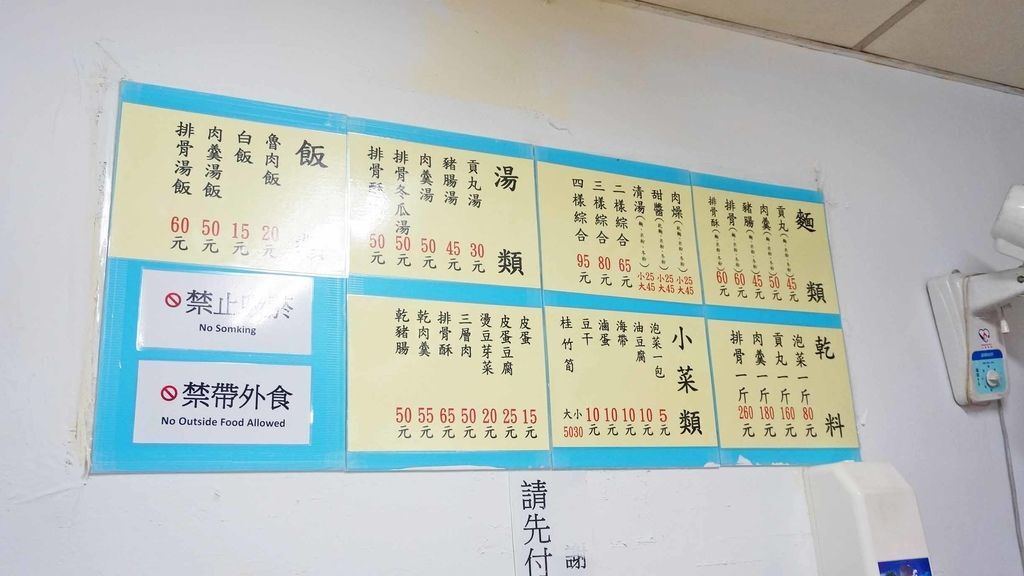 麵類
貢丸 45元
肉羹 50元
豬腸 45元
排骨 60元
排骨酥 60元
肉燥 小25 大45
甜醬 小25 大45
清湯 小25 大45
二樣綜合 65元
三樣綜合 80元
四樣綜合 95元
湯類
貢丸湯 30元
豬腸湯 45元
肉羹湯 50元
排骨冬瓜湯 50元
排骨酥 50元
飯
魯肉飯 20元
白飯 15元
肉羹湯飯 50元
排骨湯飯 60元
乾料
泡菜一斤 80元
貢丸一斤 160元
肉羹一斤 180元
排骨一斤 260元
小菜類
泡菜一包 5元
油豆腐 10元
海帶 10元
滷蛋 10元
豆干 10元
桂竹筍 大50 小30
皮蛋 15元
皮蛋豆腐 25元
燙豆芽菜 20元
三層肉 50元
排骨酥 65元
乾肉羹 55元
乾豬腸 50元
禁止
No Somking
禁帶外食
No Outside Food Allowed
請先付
謝